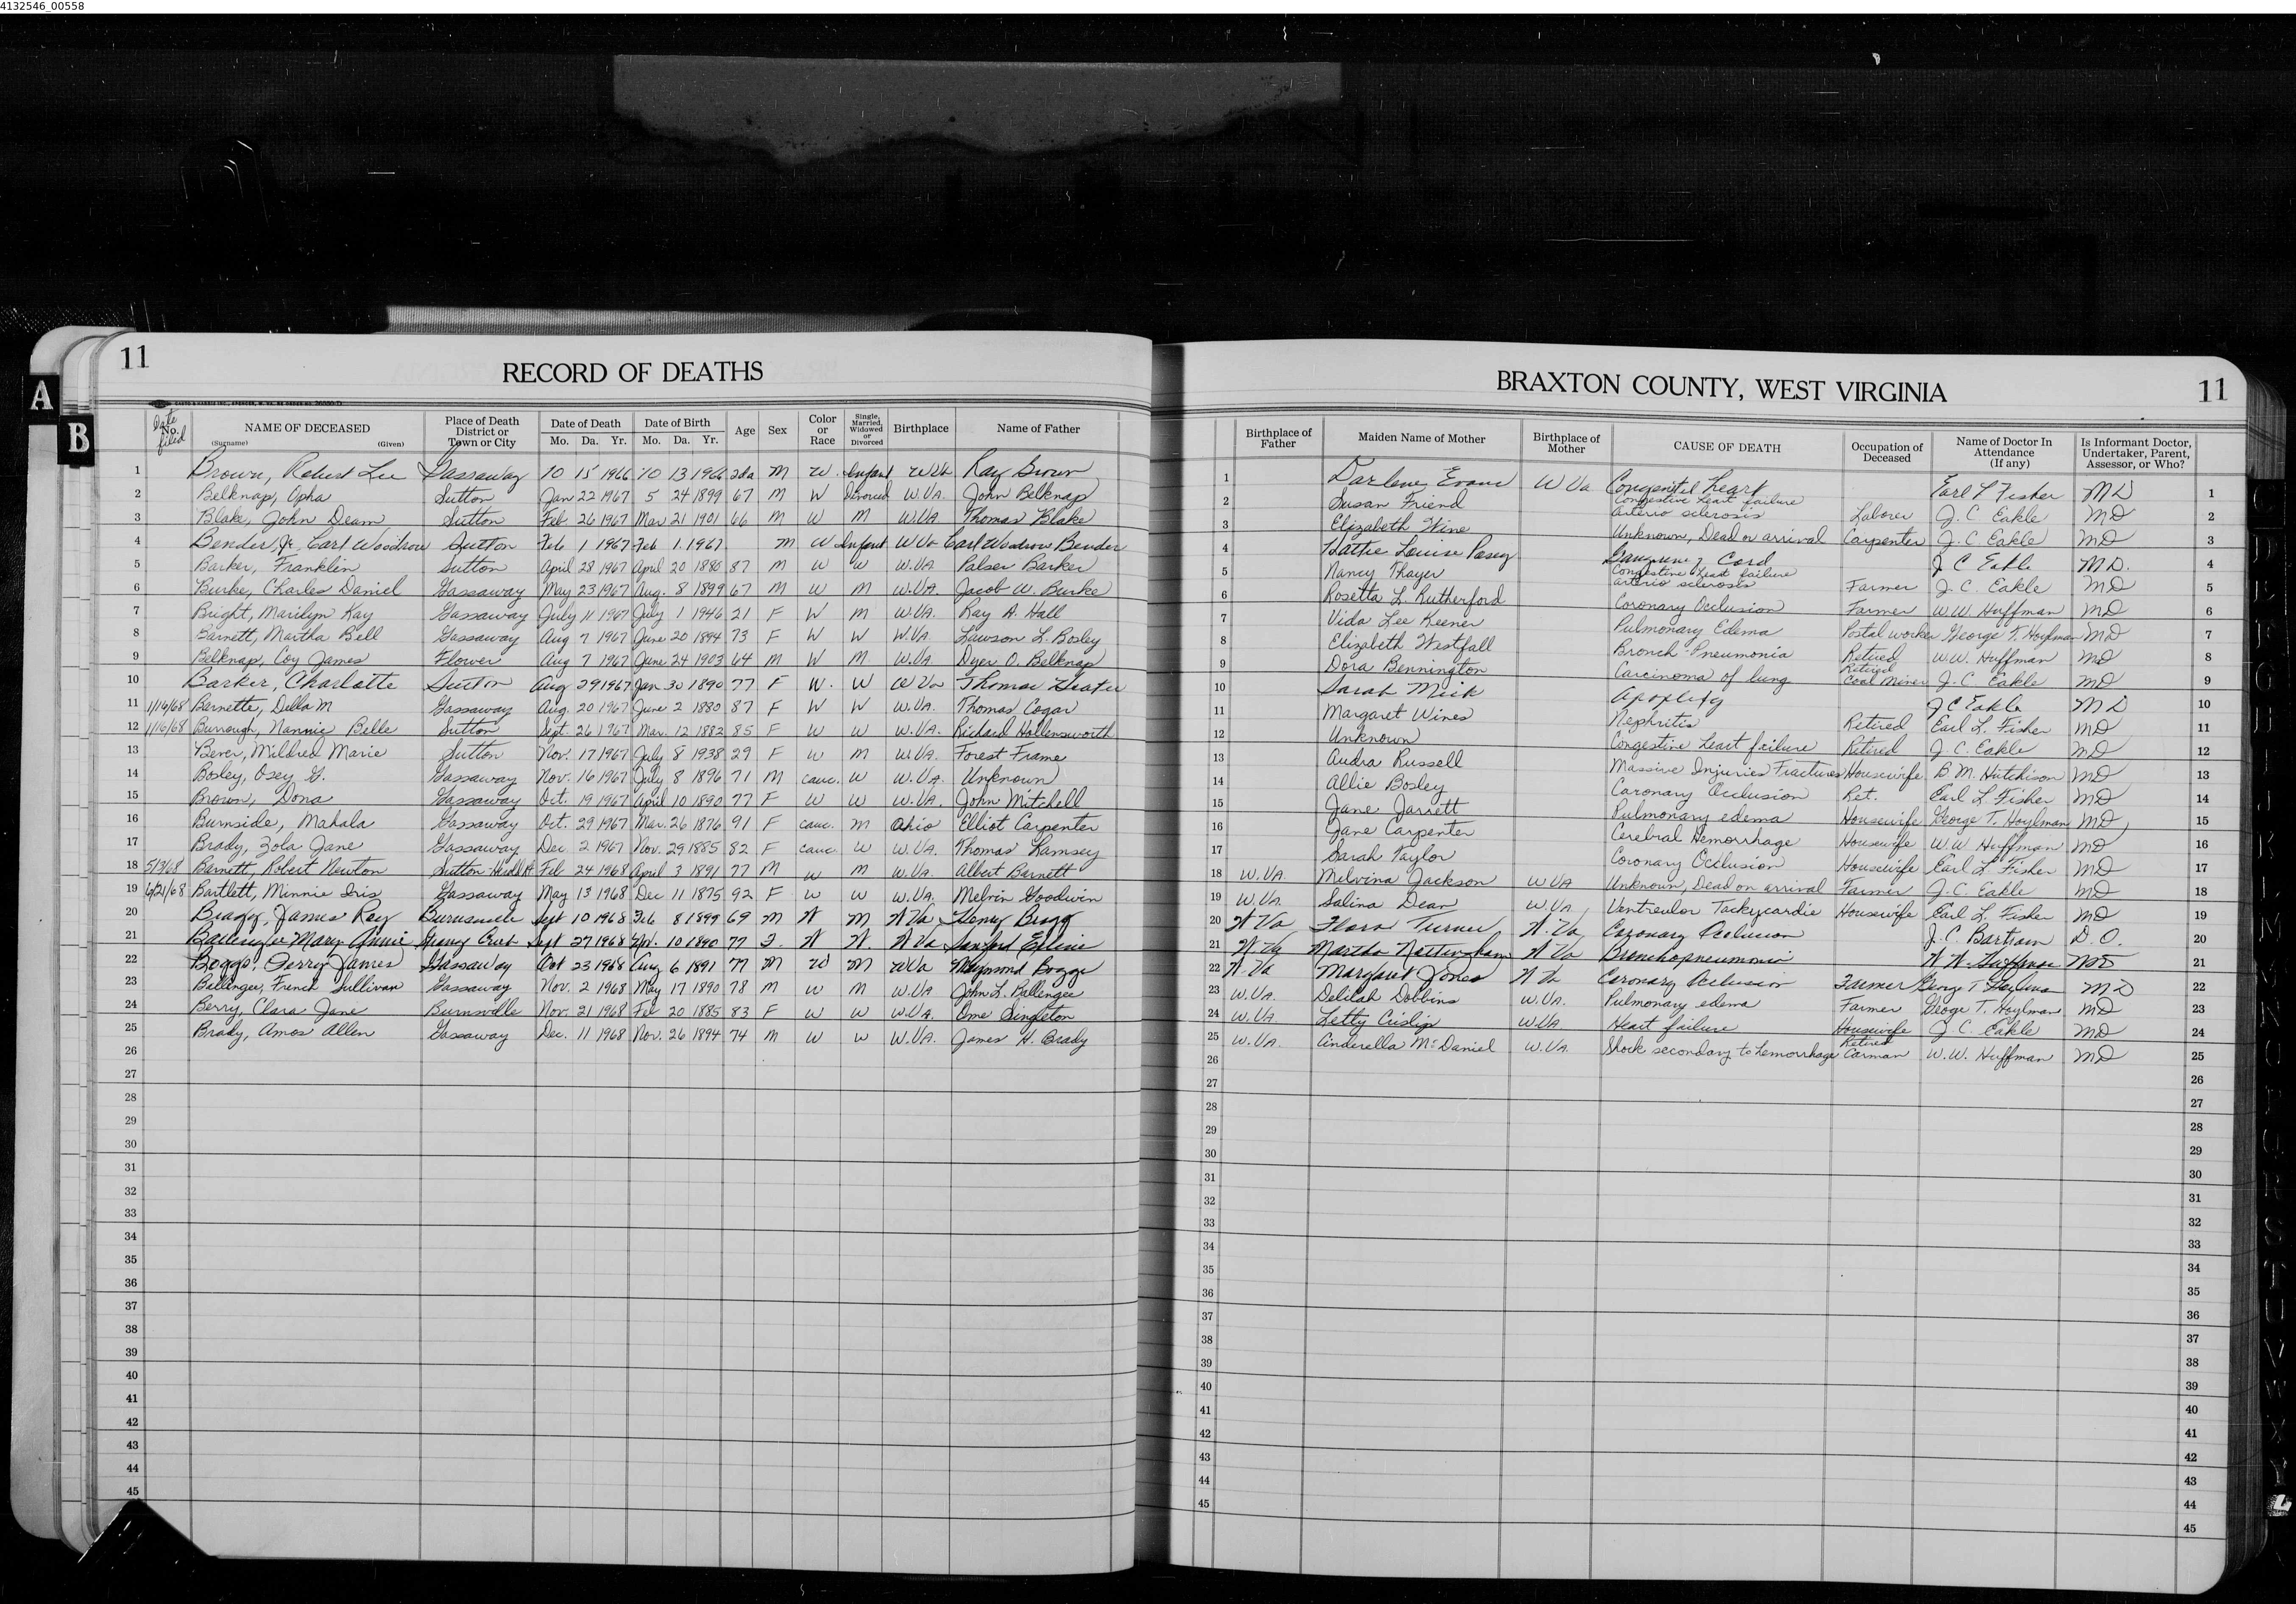 4132546_00558
11
RECORD OF DEATHS
A
B
Date No. filed
NAME OF DECEASED (Surname) (Given)
Place of Death District or Town or City
Date of Death Mo. Da. Yr.
Date of Birth Mo. Da. Yr.
Age
Sex
Color or Race
Single, Married, Widowed or Divorced
Birthplace
Name of Father
1 Brown, Robert Lee Gassaway 10 15 1966 10 13 1966 2da M W. Infant W Va Ray Brown
2 Belknap, Opha Sutton Jan 22 1967 5 24 1899 67 M W Divorced W.VA. John Belknap
3 Blake, John Deam Sutton Feb. 26 1967 Mar. 21 1901 66 M W M W.VA Thomas Blake
4 Bender, Jr. Carl Woodrow Sutton Feb 1 1967 Feb 1. 1967 M W Infant W Va Carl Woodrow Bender
5 Barker, Franklin Sutton April 28 1967 April 20 1880 87 M W W W.VA Palser Barker
6 Burke, Charles Daniel Gassaway May 23 1967 Aug. 8 1899 67 M W M W.VA. Jacob W. Burke
7 Bright, Marilyn Kay Gassaway July 11 1967 July 1 1946 21 F W M W.VA. Ray A. Hall
8 Barnett, Martha Bell Gassaway Aug 7 1967 June 20 1894 73 F W W W.VA. Lawson L. Bosley
9 Belknap, Coy James Flower Aug 7 1967 June 24 1903 64 M W M. W.VA. Dyer O. Belknap
10 Barker, Charlotte Sutton Aug 29 1967 Jan 30 1890 77 F W. W W Va Thomas Heater
11 1/16/68 Barnette, Della M Gassaway Aug. 20 1967 June 2 1880 87 F W W W.VA. Thomas Cogar
12 1/16/68 Burrough, Nannie Belle Sutton Sept. 26 1967 Mar. 12 1882 85 F W W W.VA. Richard Hollensworth
13 Bever, Mildred Marie Sutton Nov. 17 1967 July 8 1938 29 F W M W.VA. Forest Frame
14 Bosley, Osey G. Gassaway Nov. 16 1967 July 8 1896 71 M cauc. W W.VA. Unknown
15 Brown, Dona Gassaway Oct. 19 1967 April 10 1890 77 F W W W.VA. John Mitchell
16 Burnside, Mahala Gassaway Oct. 29 1967 Mar. 26 1876 91 F cauc. M Ohio Elliot Carpenter
17 Brady, Zola Jane Gassaway Dec. 2 1967 Nov. 29 1885 82 F cauc W W.VA. Thomas Ramsey
18 5/3/68 Barnett, Robert Newton Sutton Feb 24 1968 April 3 1891 77 M W M W.VA. Albert Barnett
19 6/21/68 Bartlett, Minnie Iris Gassaway May 13 1968 Dec 11 1875 92 F W W W.VA. Melvin Goodwin
20 Bragg, James Ray Burnsville Sept 10 1968 Feb 8 1899 69 M W M W Va Henry Bragg
21 Mary Annie Sept 27 1968 10 1890 77 F. W W. W Va Sanford
22 Boggs, Perry James Gassaway Oct 23 1968 Aug 6 1891 77 M W M W Va Raymond Boggs
23 Bellinger, French Sullivan Gassaway Nov. 2 1968 May 17 1890 78 M W M W.VA John L. Ballenger
24 Berry, Clara Jane Burnsville Nov. 21 1968 Feb 20 1885 83 F W W W.VA. Ome Singleton
25 Brady, Amos Allen Gassaway Dec. 11 1968 Nov. 26 1894 74 M W W W.VA. James H. Brady
26
27
28
29
30
31
32
33
34
35
36
37
38
39
40
41
42
43
44
45
BRAXTON COUNTY, WEST VIRGINIA
11
Birthplace of Father
Maiden Name of Mother
Birthplace of Mother
CAUSE OF DEATH
Occupation of Deceased
Name of Doctor In Attendance (If any)
Is Informant Doctor, Undertaker, Parent, Assessor, or Who?
1 Darlene Evans W Va Congenital heart Earl L Fisher MD 1
2 Susan Friend Congestive heart failure arterio sclerosis Laborer J. C. Eakle MD 2
3 Elizabeth Wine Unknown, Dead on arrival Carpenter J. C. Eakle MD 3
4 Hattie Louise Posey Cord J C Eakle M.D. 4
5 Nancy Thayer Congestive heart failure arterio sclerosis Farmer J. C. Eakle MD 5
6 Rosetta L. Rutherford Coronary Occlusion Farmer W.W. Huffman MD 6
7 Vida Lee Keener Pulmonary Edema Postal worker George T. Hoylman MD 7
8 Elizabeth Westfall Bronch-Pneumonia Retired W.W. Huffman MD 8
9 Dora Bennington Carcinoma of lung Retired Coal Miner J. C. Eakle MD 9
10 Sarah Mick Apoplexy J C Eakle MD 10
11 Margaret Wines Nephritis Retired Earl L. Fisher MD 11
12 Unknown Congestive heart failure Retired J. C. Eakle MD 12
13 Audra Russell Massive Injuries Fractures Housewife B. M. Hutchison MD 13
14 Allie Bosley Coronary Occlusion Ret. Earl L. Fisher MD 14
15 Jane Jarrett Pulmonary edema Housewife George T. Hoylman MD 15
16 Jane Carpenter Cerebral Hemorrhage Housewife W.W. Huffman MD 16
17 Sarah Taylor Coronary Occlusion Housewife Earl L. Fisher MD 17
18 W.VA. Melvina Jackson W.VA Unknown, Dead on arrival Farmer J. C. Eakle MD 18
19 W.VA. Salina Dean W.VA. Ventreulor Tackycardie Housewife Earl L. Fisher MD 19
20 W Va Flora Turner W. Va Coronary Occlusion J. C. Bartram D.O. 20
21 W. Va Martha Nottingham W Va Bronchopneumonia W W Huffman MD 21
22 W. Va Margaret Jones W Va Coronary Occlusion Farmer George T Hoylman MD 22
23 W.VA. Delilah Dobbins W.VA. Pulmonary edema Farmer George T. Hoylman MD 23
24 W.VA Letty Crislip W.VA Heart failure Housewife J. C. Eakle MD 24
25 W.VA. Cinderella McDaniel W.VA. Shock secondary to hemorrhage Retired Carman W.W. Huffman MD 25
26 26
27 27
28 28
29 29
30 30
31 31
32 32
33 33
34 34
35 35
36 36
37 37
38 38
39 39
40 40
41 41
42 42
43 43
44 44
45 45